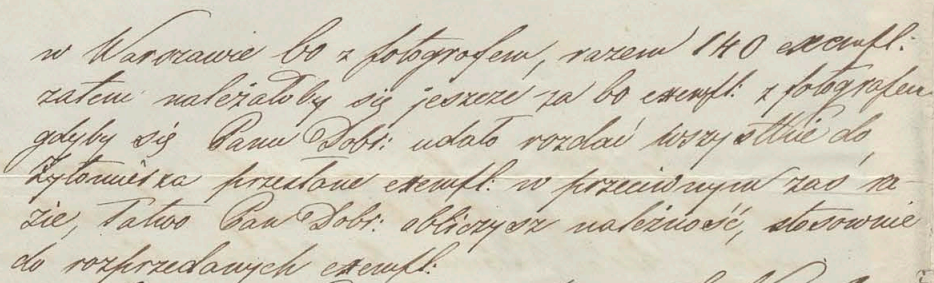 w Warszawie 60 z fotografem, razem 140 exempl:
zatem należałoby się jeszcze za 60 exempl: z fotografem
gdyby się Panu Dobr: udało rozdać wszystkie do
Żytomierza przesłane exempl: w przeciwnym zaś ra-
zie, łatwo Pan Dobr: obliczysz należność, stosownie
do rozprzedanych exempl: